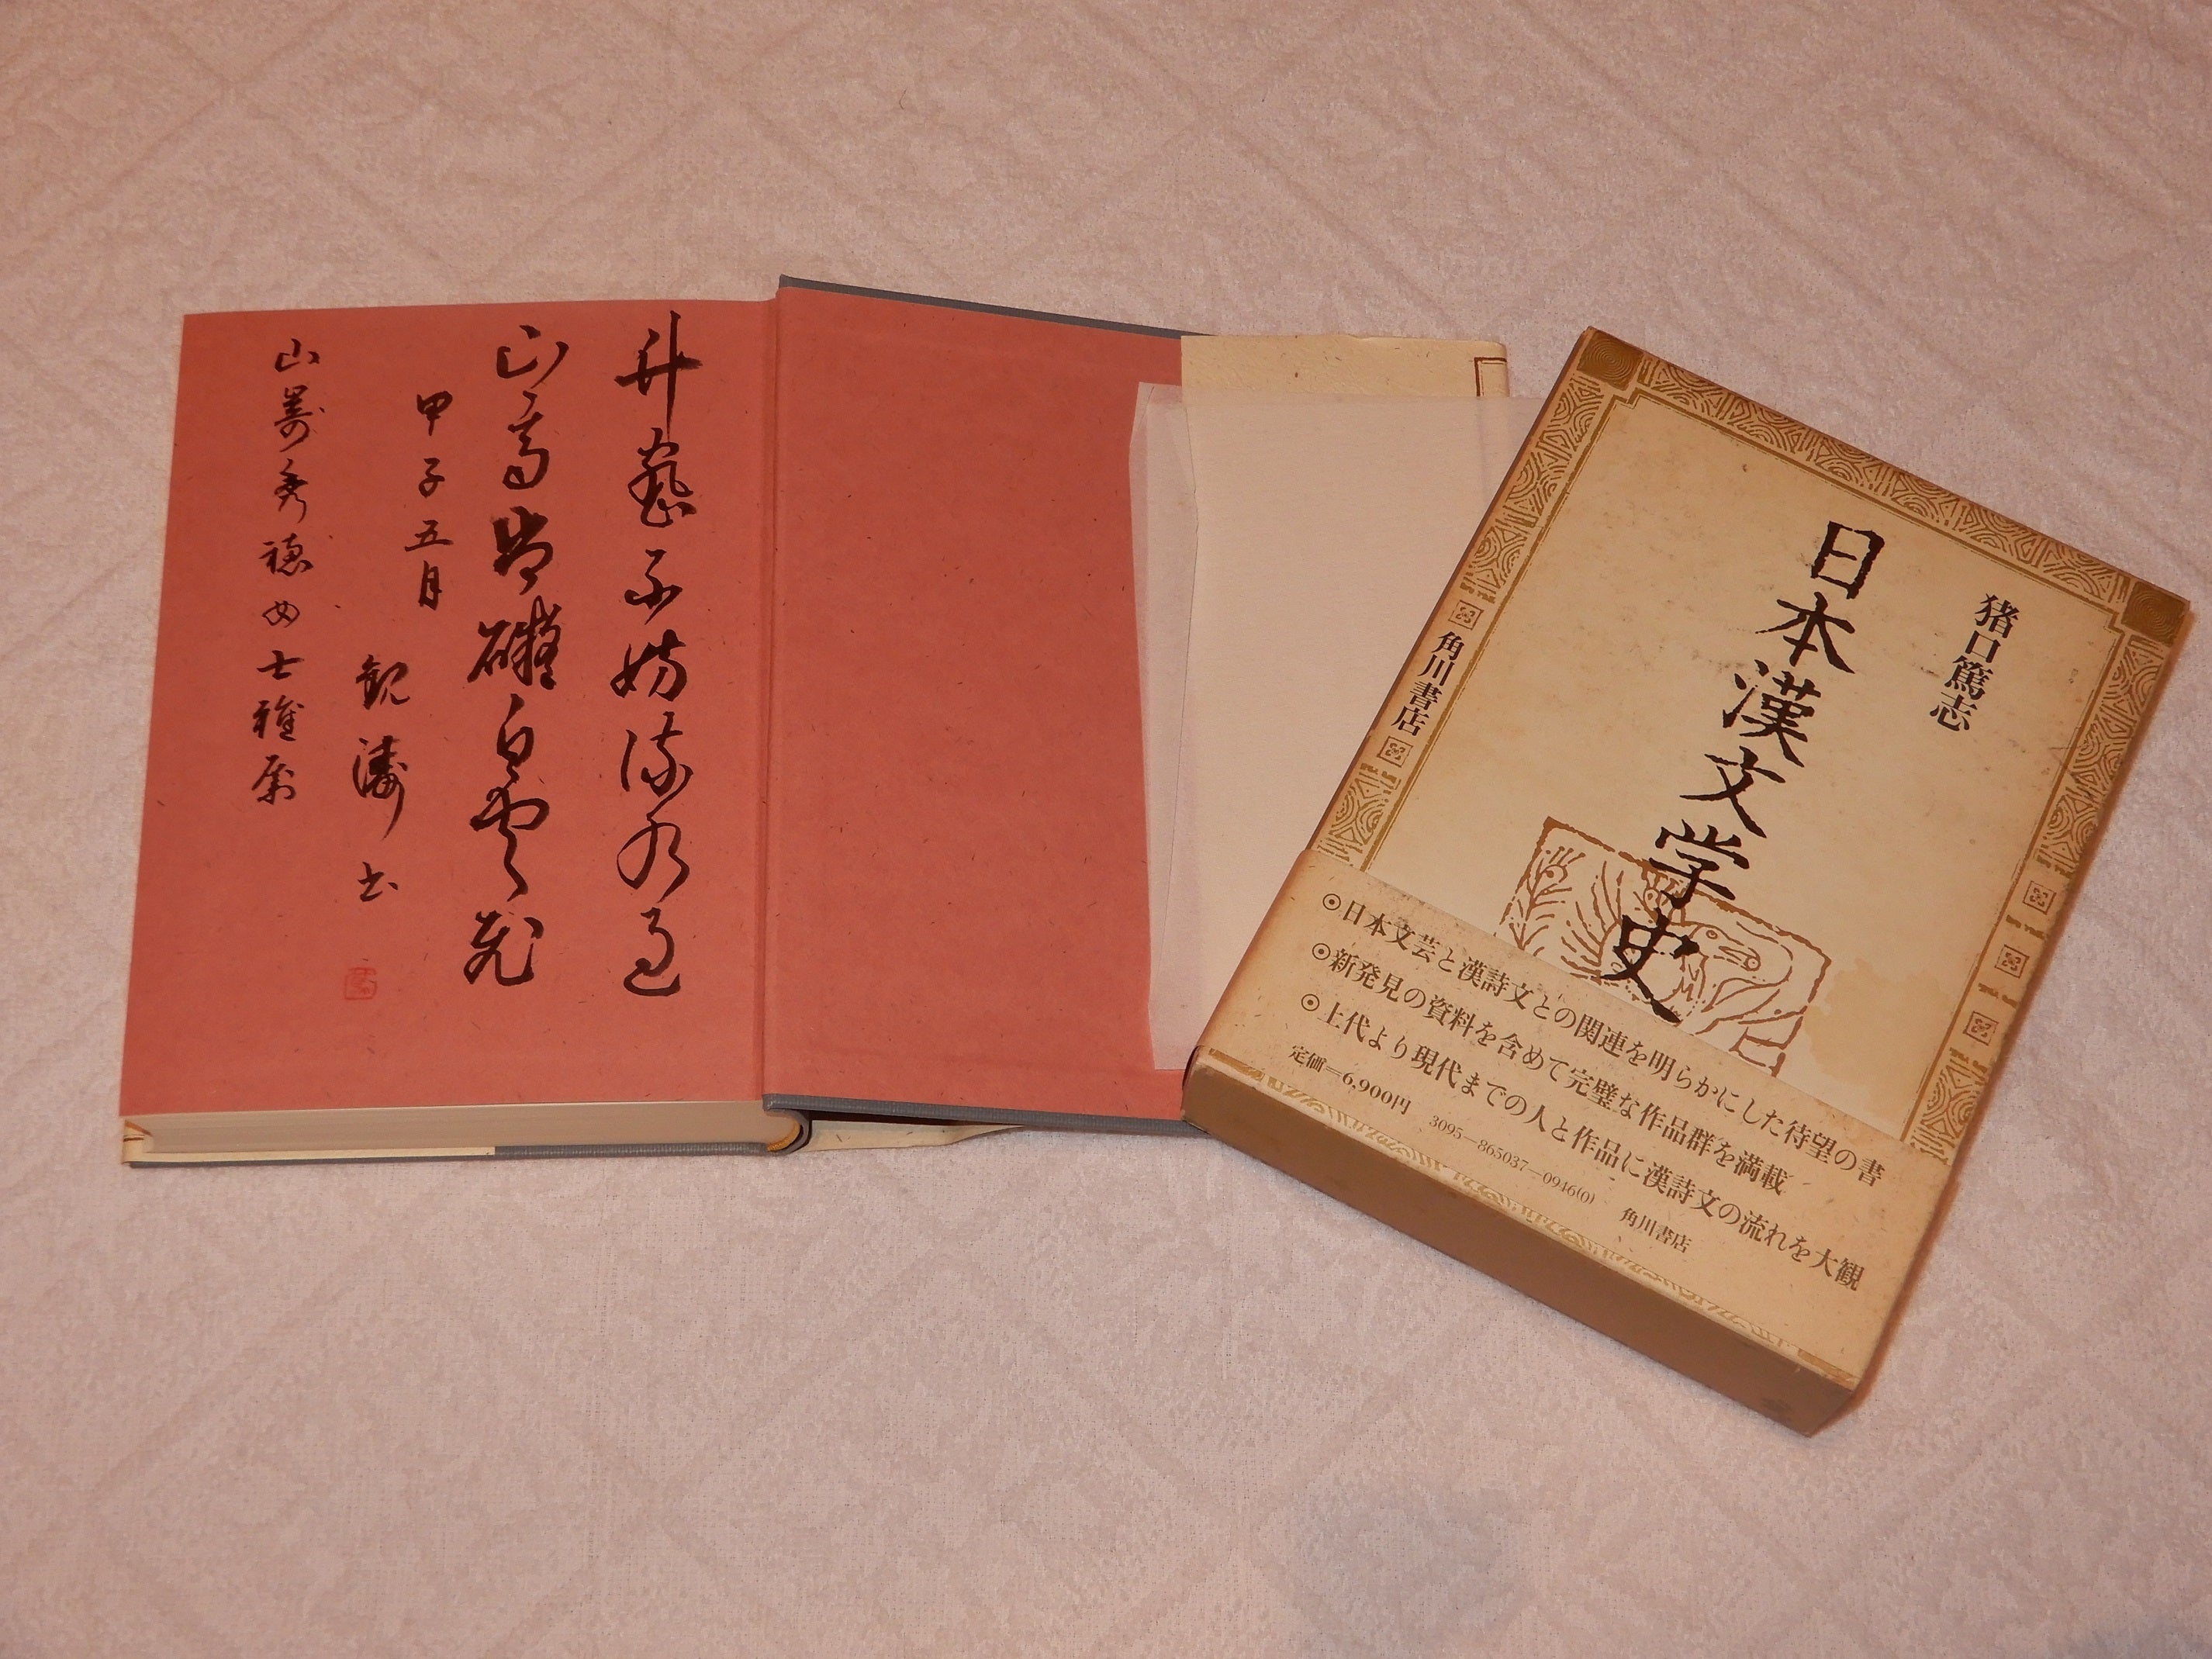 竹密不妨流水過
山高豈礙白雲飛
甲子五月
観濤書
山嵜秀穂女士雅属
猪口篤志
日本漢文学史
角川書店
⦿日本文芸と漢詩文との関連を明らかにした待望の書
⦿新発見の資料を含めて完璧な作品群を満載
⦿上代より現代までの人と作品に漢詩文の流れを大観
定価=6,900円 3095-865037-0946(0) 角川書店